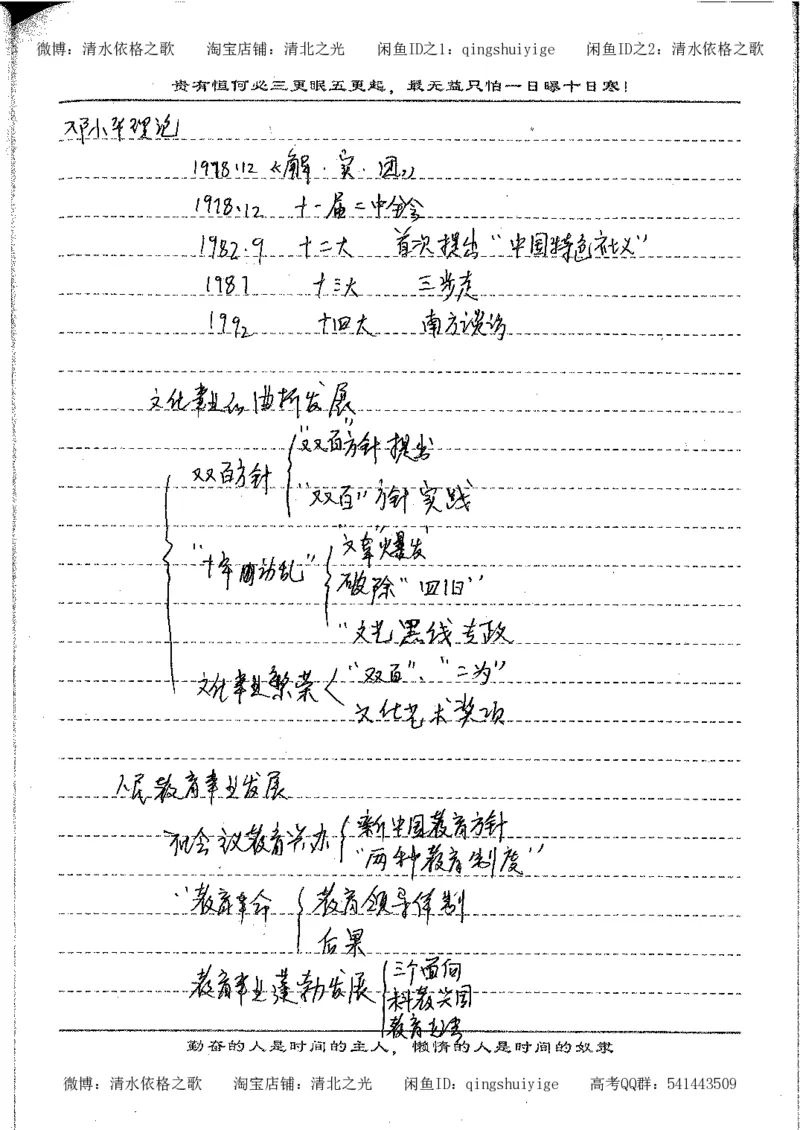 微博：清水依格之歌 淘宝店铺：清北之光 闲鱼ID之1：qingshuiyige 闲鱼ID之2：清水依格之歌
贵有恒何必三更眠五更起，最无益只怕一日曝十日寒！
邓小平理论
1978.12 《解·实·团》
1978.12 十一届三中全会
1982.9 十二大 首次提出“中国特色社义”
1987 十三大 三步走
1992 十四大 南方谈话
文化事业的曲折发展
“双百”方针提出
双百方针
“双百”方针实践
“文革”爆发
“十年动乱”
破除“四旧”
“文艺黑线专政
“双百”、“二为”
文化事业繁荣
文化艺术奖项
人民教育事业发展
新中国教育方针
社会议教育兴办
“两种教育制度”
“教育革命 教育领导体制
后果
三个面向
教育事业蓬勃发展 科教兴国
教育
勤奋的人是时间的主人，懒惰的人是时间的奴隶
微博：清水依格之歌 淘宝店铺：清北之光 闲鱼ID：qingshuiyige 高考QQ群：541443509